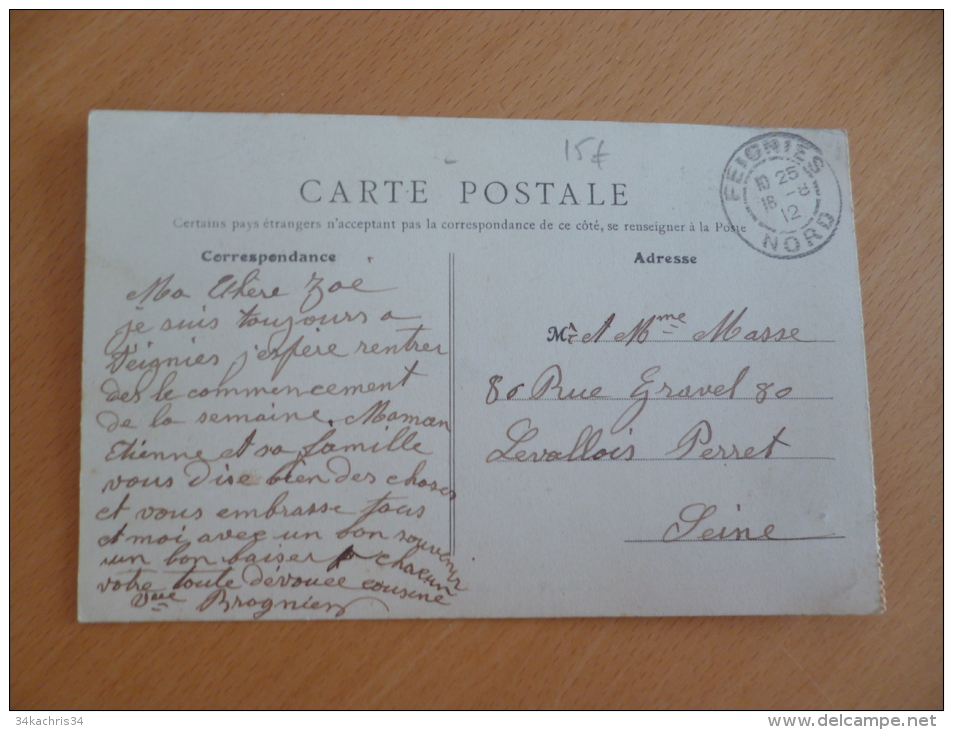 15€
CARTE POSTALE
Certains pays étrangers n'acceptant pas la correspondance de ce côté, se renseigner à la Poste
FEIGNIES
25
18 - 8
12
NORD
Correspondance
Ma Chère Zoe
je suis toujours a
Feignies j'espère rentrer
des le commencement
de la semaine. Maman
Etienne et sa famille
vous dise bien des choses
et vous embrasse tous
et moi avec un bon souvenir
un bon baiser p chacun
votre toute dévouée cousine
Vve Brognier
Adresse
Mr et Mme Masse
80 Rue Gravel 80
Levallois Perret
Seine
34kachris34
www.delcampe.net